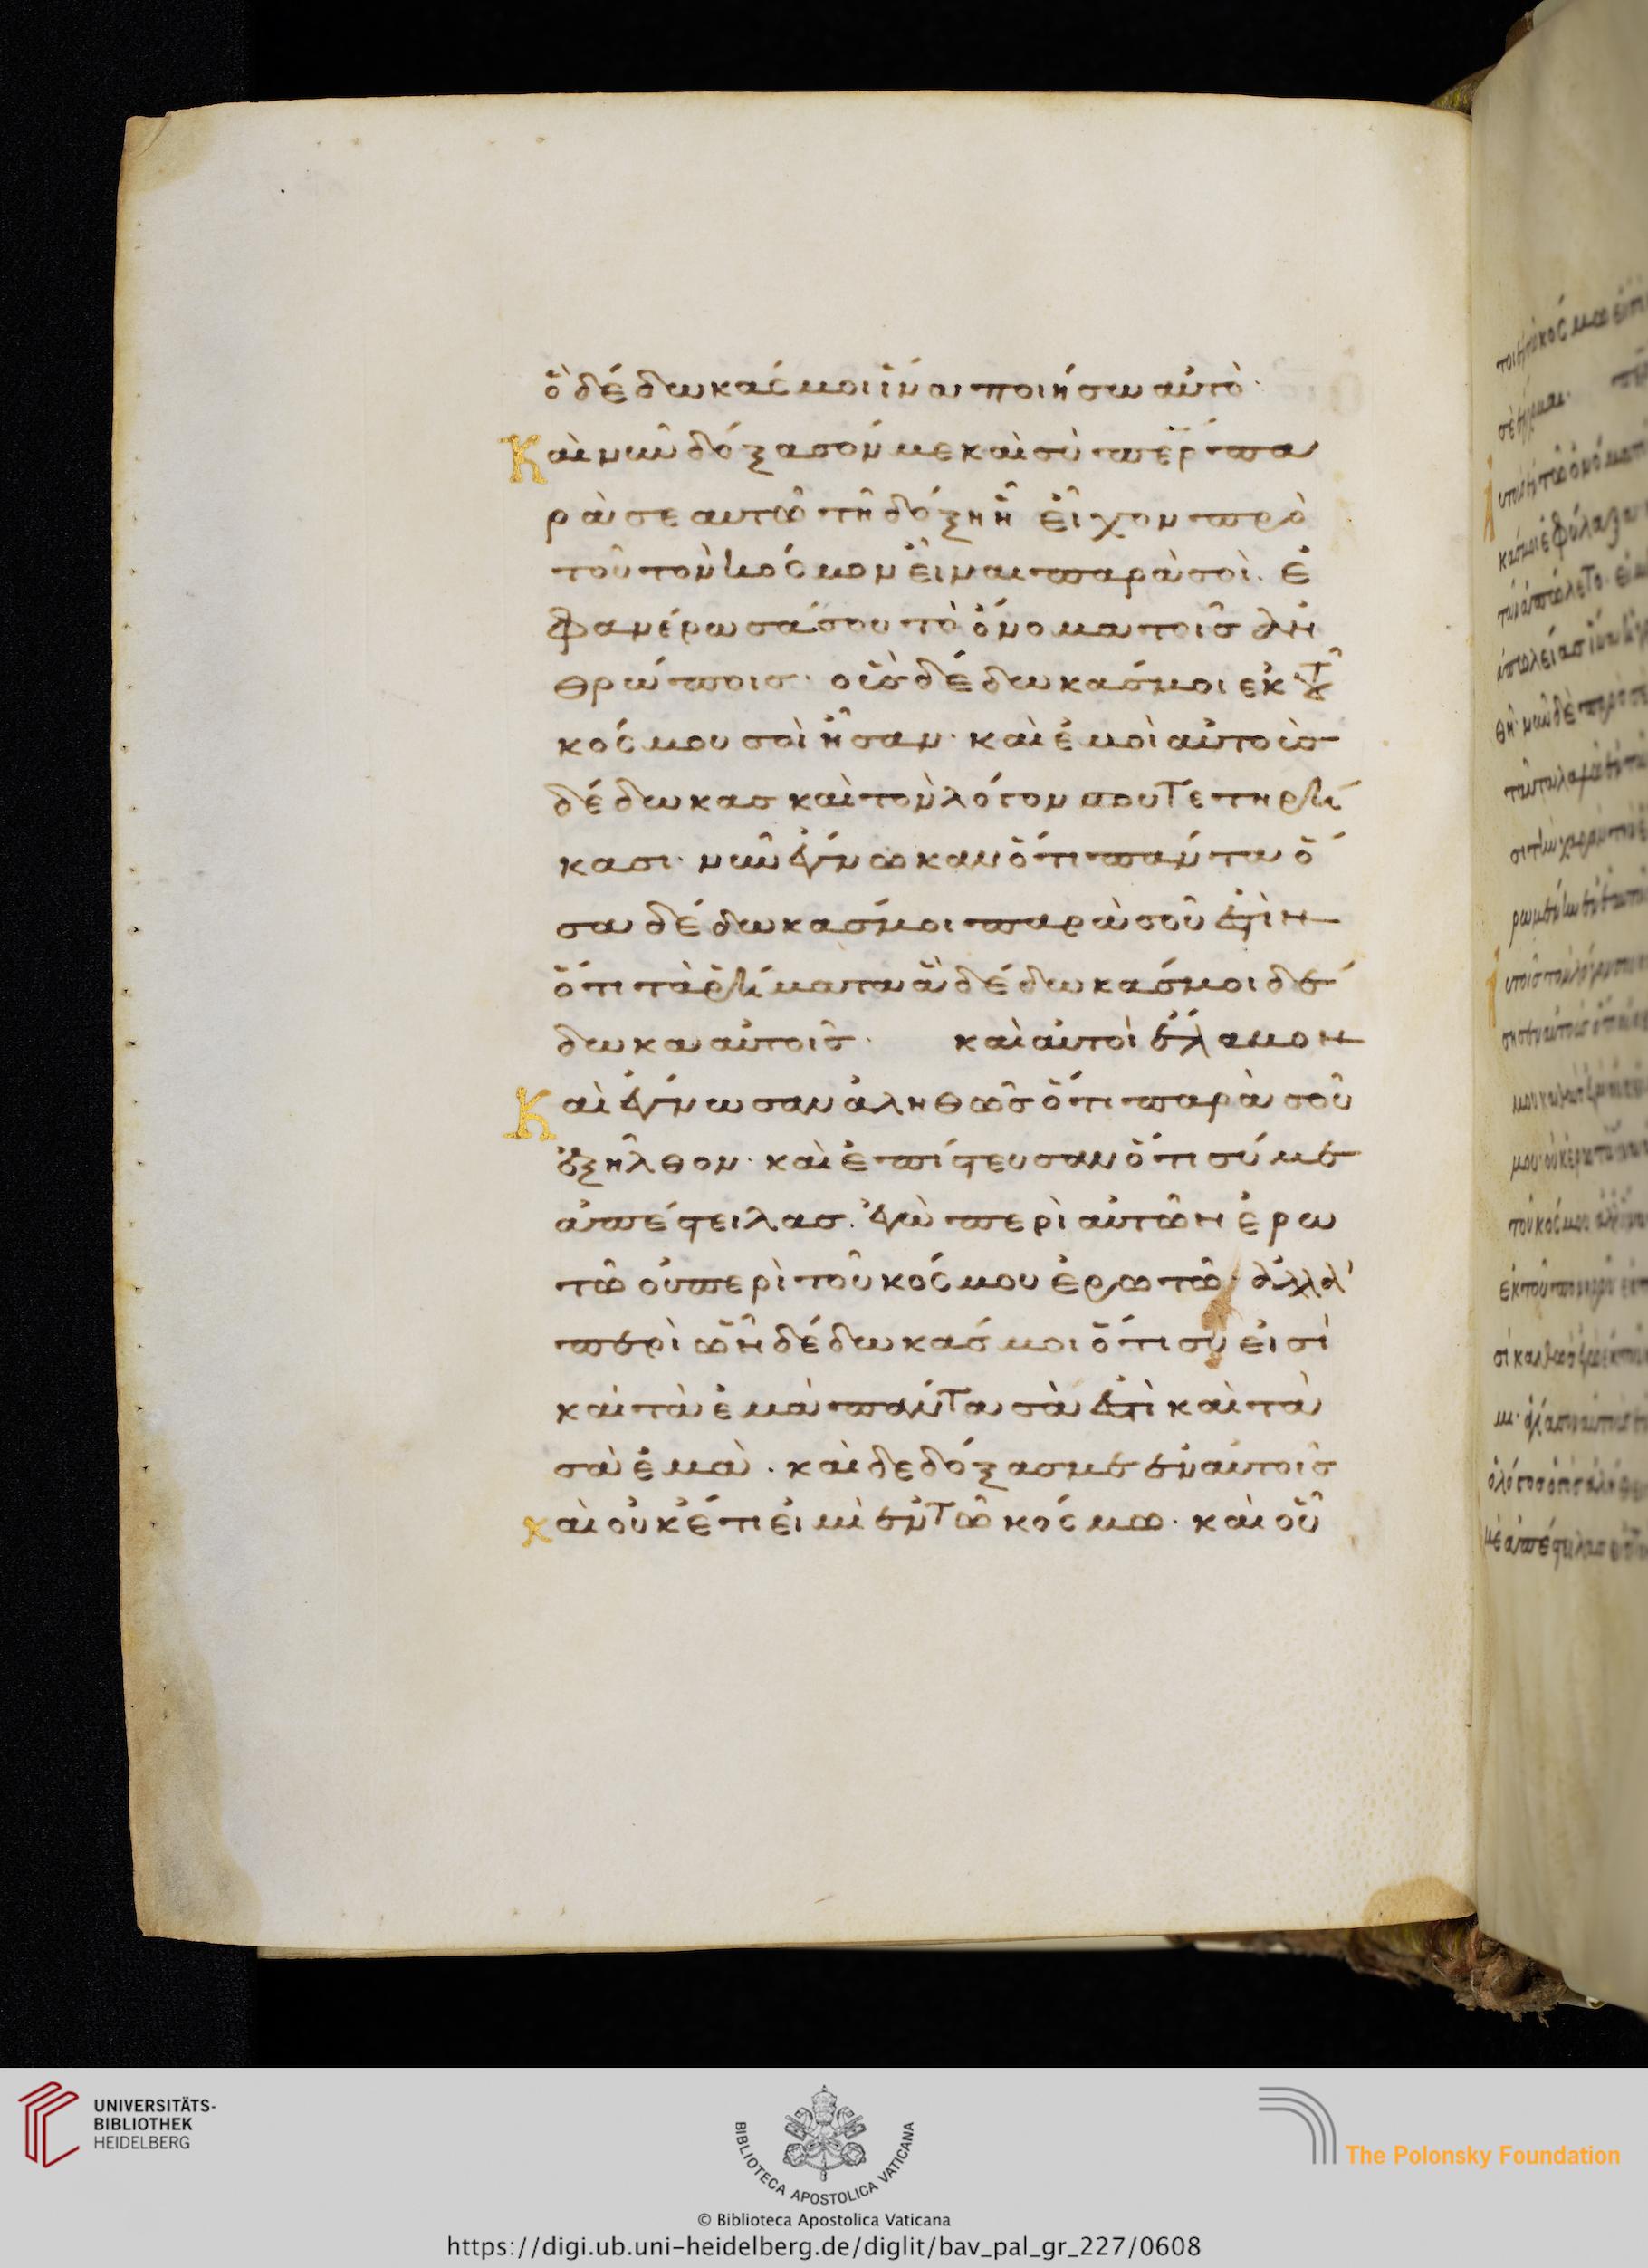 ὃ δέδωκάς μοι ἵνα ποιήσω αὐτὸ·
Καὶ νῦν δόξασόν με καὶ σὺ περ πα
ρὰ σεαυτῶ τῆ δόξη ἧ εἶχον πρὸ
τοῦ τὸν κόσμον εἶναι παρὰ σοὶ. ἐ
φανέρωσά σου τὸ ὄνομα τοῖς ἀν
θρώποις· οὓς δέδωκάς μοι ἐκ τοῦ
κόσμου σοὶ ἦσαν· καὶ ἐμοὶ αὐτοὺς
δέδωκας καὶ τὸν λόγον σου τετηρή
κασι· νῦν ἔγνωκαν ὅτι πάντα ὅ
σα δέδωκάς μοι παρὰ σοῦ ἐστὶν
ὅτι τὰ ῥήματα ἃ δέδωκάς μοι δέ
δωκα αὐτοῖς· καὶ αὐτοὶ ἔλαβον
Καὶ ἔγνωσαν ἀληθῶς ὅτι παρὰ σοῦ
ἐξῆλθον· καὶ ἐπίστευσαν ὅτι σύ με
ἀπέστειλας. ἐγὼ περὶ αὐτῶν ἐρω
τῶ οὐ περὶ τοῦ κόσμου ἐρωτῶ ἀλλὰ
περὶ ὧν δέδωκάς μοι ὅτι σύ εἰσὶ
καὶ τὰ ἐμὰ πάντα σὰ ἐστὶ καὶ τὰ
σὰ ἐμὰ. καὶ δεδόξασμε ἐν αὐτοῖς
καὶ οὐκέτι εἰμὶ ἐν τῶ κόσμω· καὶ οὗ
UNIVERSITÄTS-
BIBLIOTHEK
HEIDELBERG
BIBLIOTECA APOSTOLICA VATICANA
The Polonsky Foundation
© Biblioteca Apostolica Vaticana
https://digi.ub.uni-heidelberg.de/diglit/bav_pal_gr_227/0608